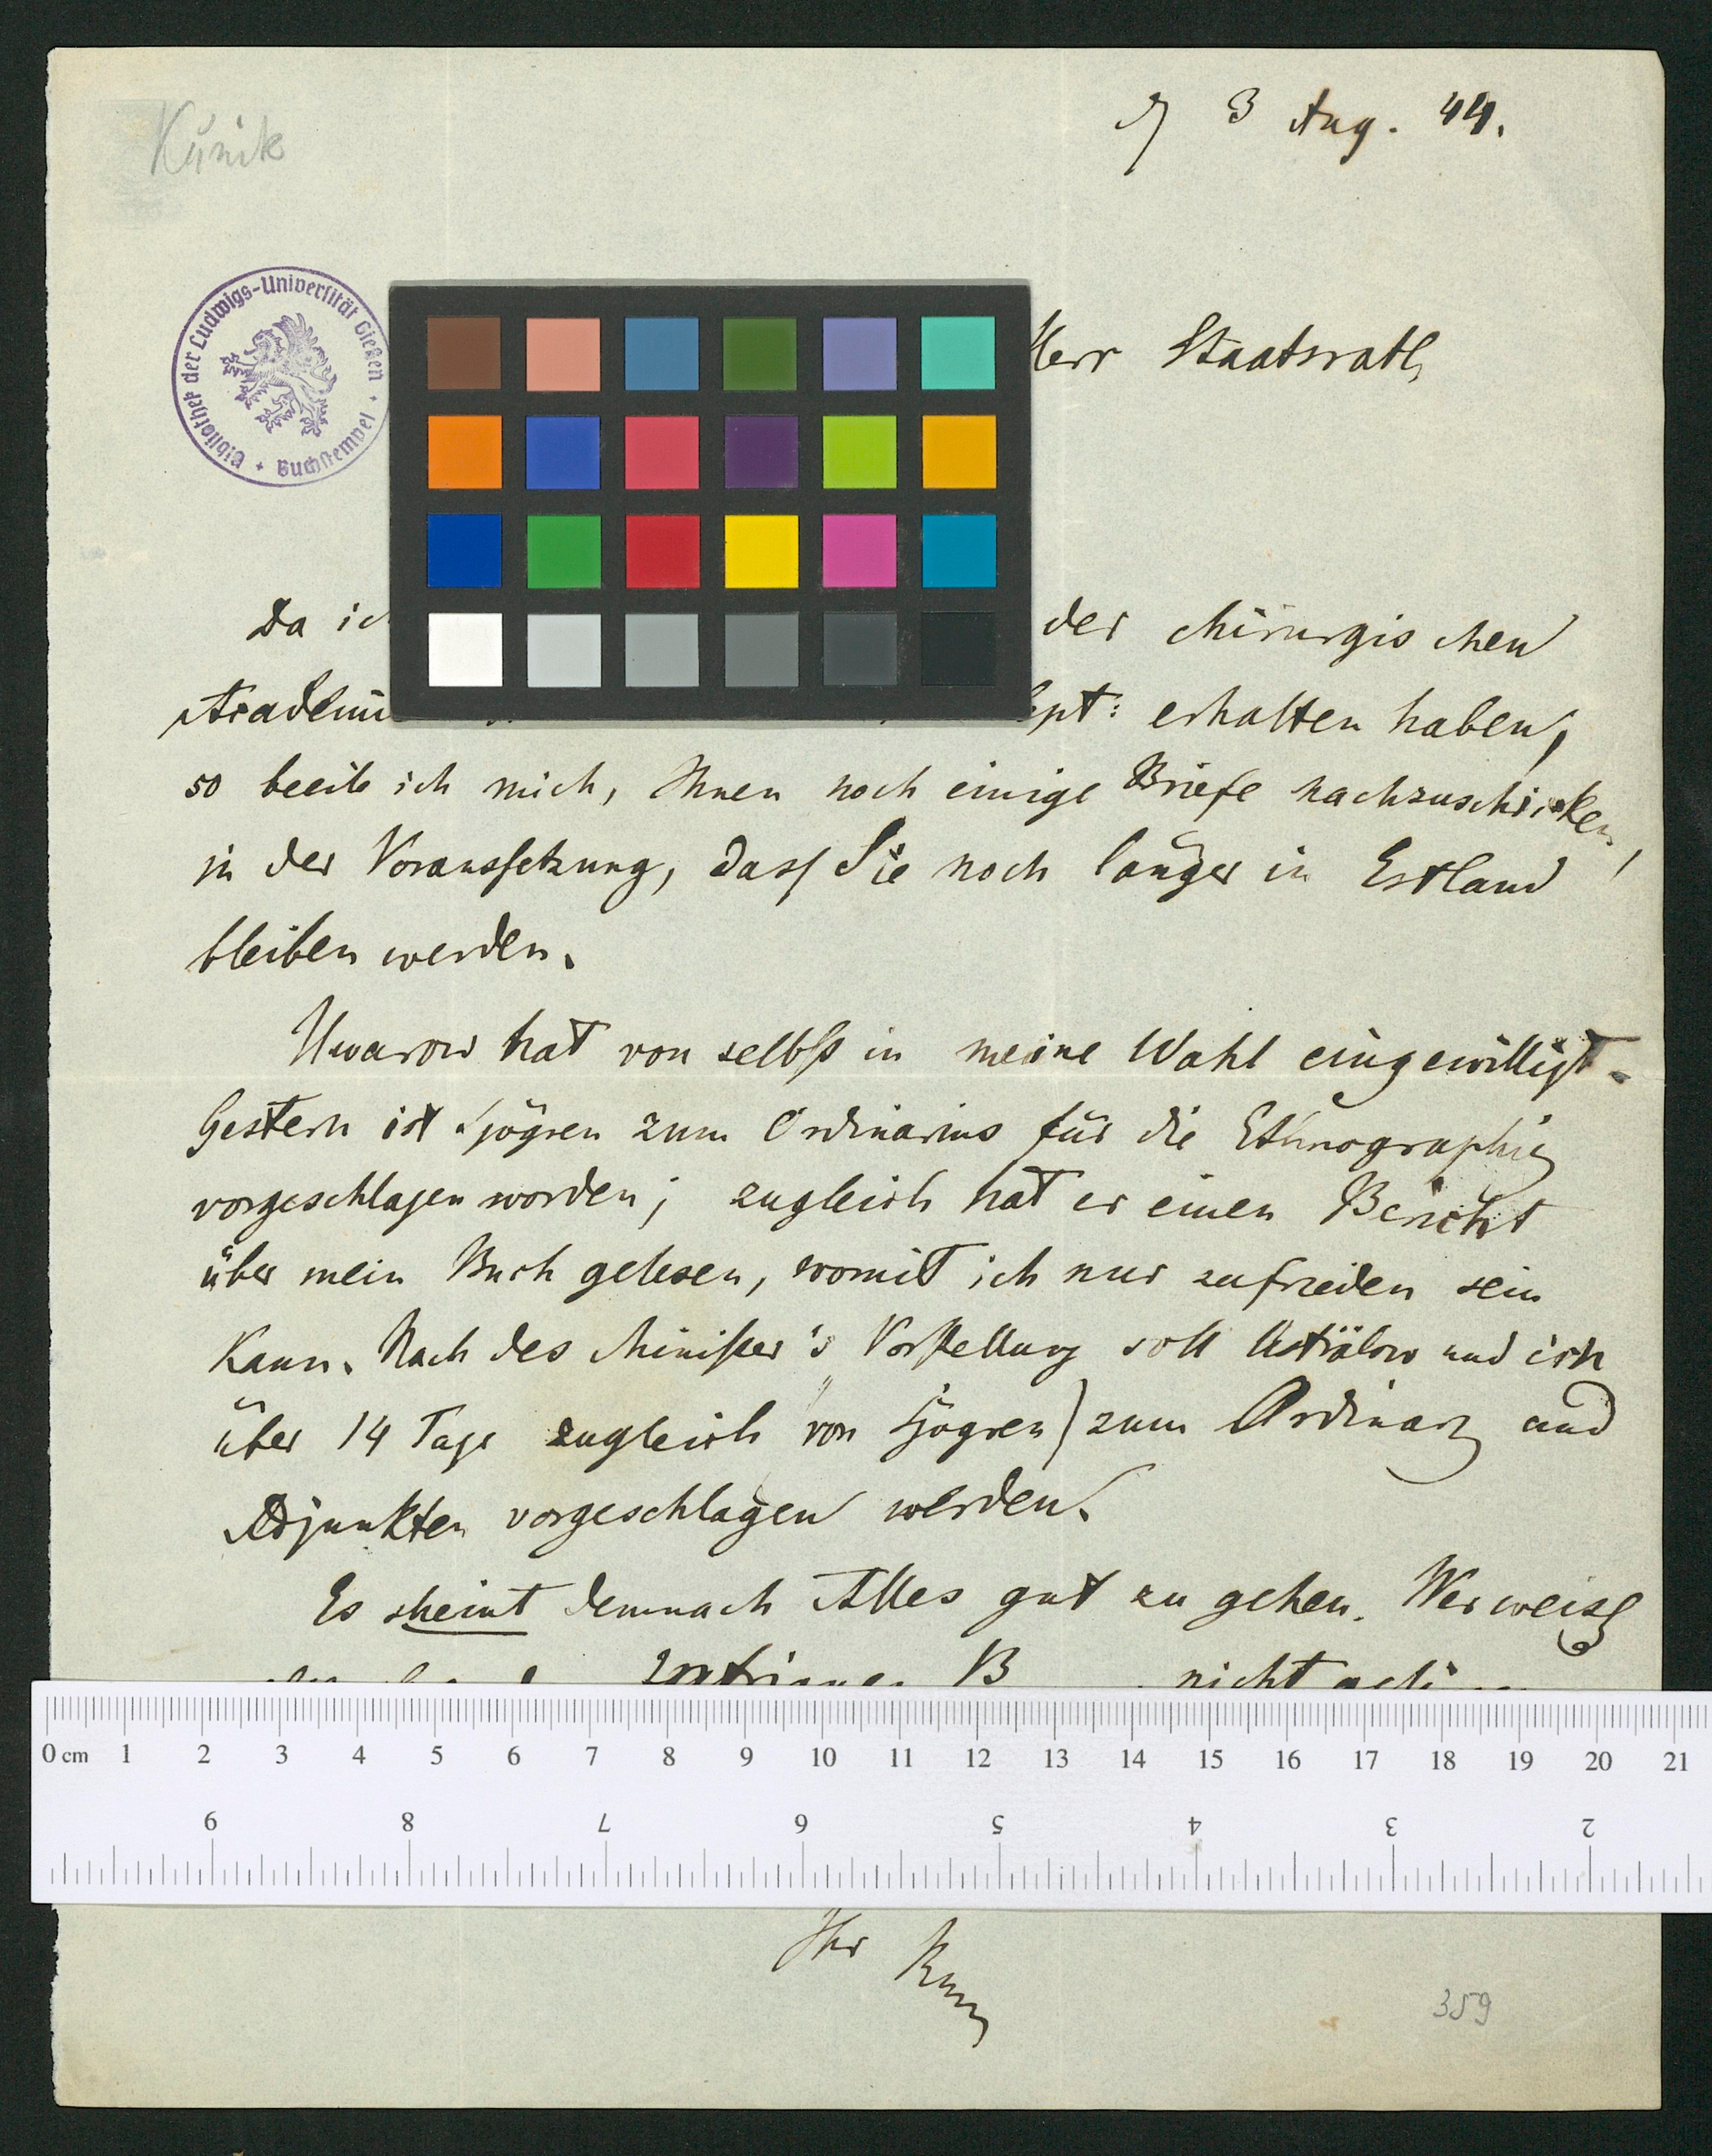 Kunik
3 Aug. 44.
Bibliothek der Ludwigs-Universität Gießen + Buchstempel +
Herr Staatsrath,
Da ich der chirurgischen
Academie erhalten haben,
so beeile ich mich, Ihnen noch einige Briefe nachzuschicken,
in der Voraussetzung, dass Sie noch länger in Estland
bleiben werden.
Uwarow hat von selbst in meine Wahl eingewilligt.
Gestern ist Sjögren zum Ordinarius für die Ethnographie
vorgeschlagen worden; zugleich hat er einen Bericht
über mein Buch gelesen, womit ich nur zufrieden sein
kann. Nach des Minister's Vorstellung soll Usträlow und ich
über 14 Tage zugleich von Sjögren) zum Ordinar und
Adjunkten vorgeschlagen werden.
Es scheint demnach Alles gut zu gehen. Wer weiss
nicht
0 cm 1 2 3 4 5 6 7 8 9 10 11 12 13 14 15 16 17 18 19 20 21
9 8 7 6 5 4 3 2
Ihr Kun
359